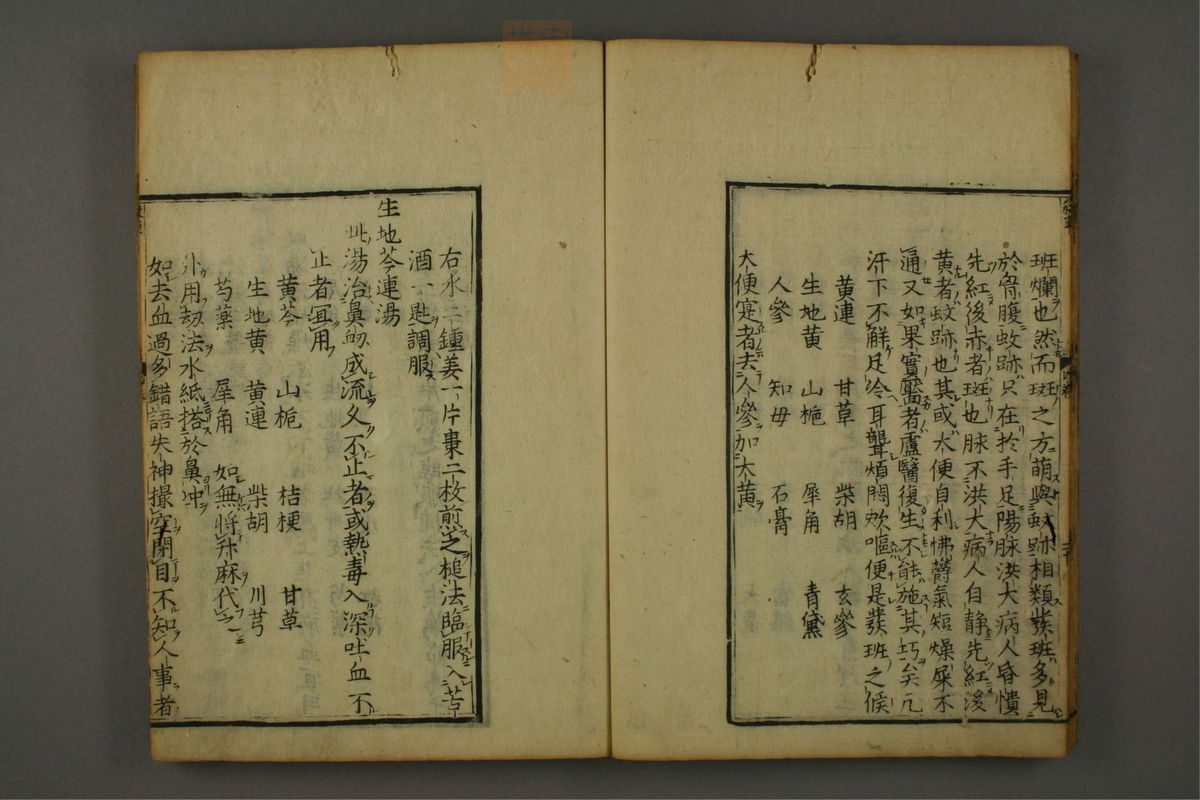 班爛也然而斑之方萌與蚊跡相類發班多見
於胷腹蚊跡只在於手足陽脉洪大病人昏憒
先紅後赤者斑也脉不洪大病人自静先紅後
黄者蚊跡也其或大便自利怫欝氣短燥屎不
通又如果實黶者盧醫復生不能施其巧矣凢
汗下不解足冷耳聾煩悶欬嘔便是發班之候
黄連 甘草 柴胡 玄參
生地黄 山梔 犀角 青黛
人參 知母 石膏
大便寔者去人參加大黄
右水二鍾姜一片棗二枚煎之槌法臨服入苦
酒一匙調服
生地芩連湯
此湯治鼻衂成流久不止者或熱毒入深吐血不
止者宜用
黄芩 山梔 桔梗 甘草
生地黄 黄連 柴胡 川芎
芍藥 犀角 如無將升麻代之
外用刼法水紙搭於鼻冲
如去血過多錯語失神撮空閉目不知人事者